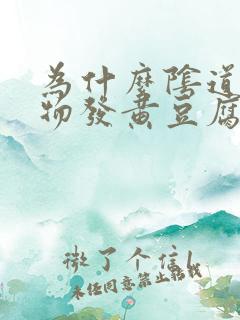 為什麼陰道
物發黄豆腐
微了个信l
未经同意禁止转载